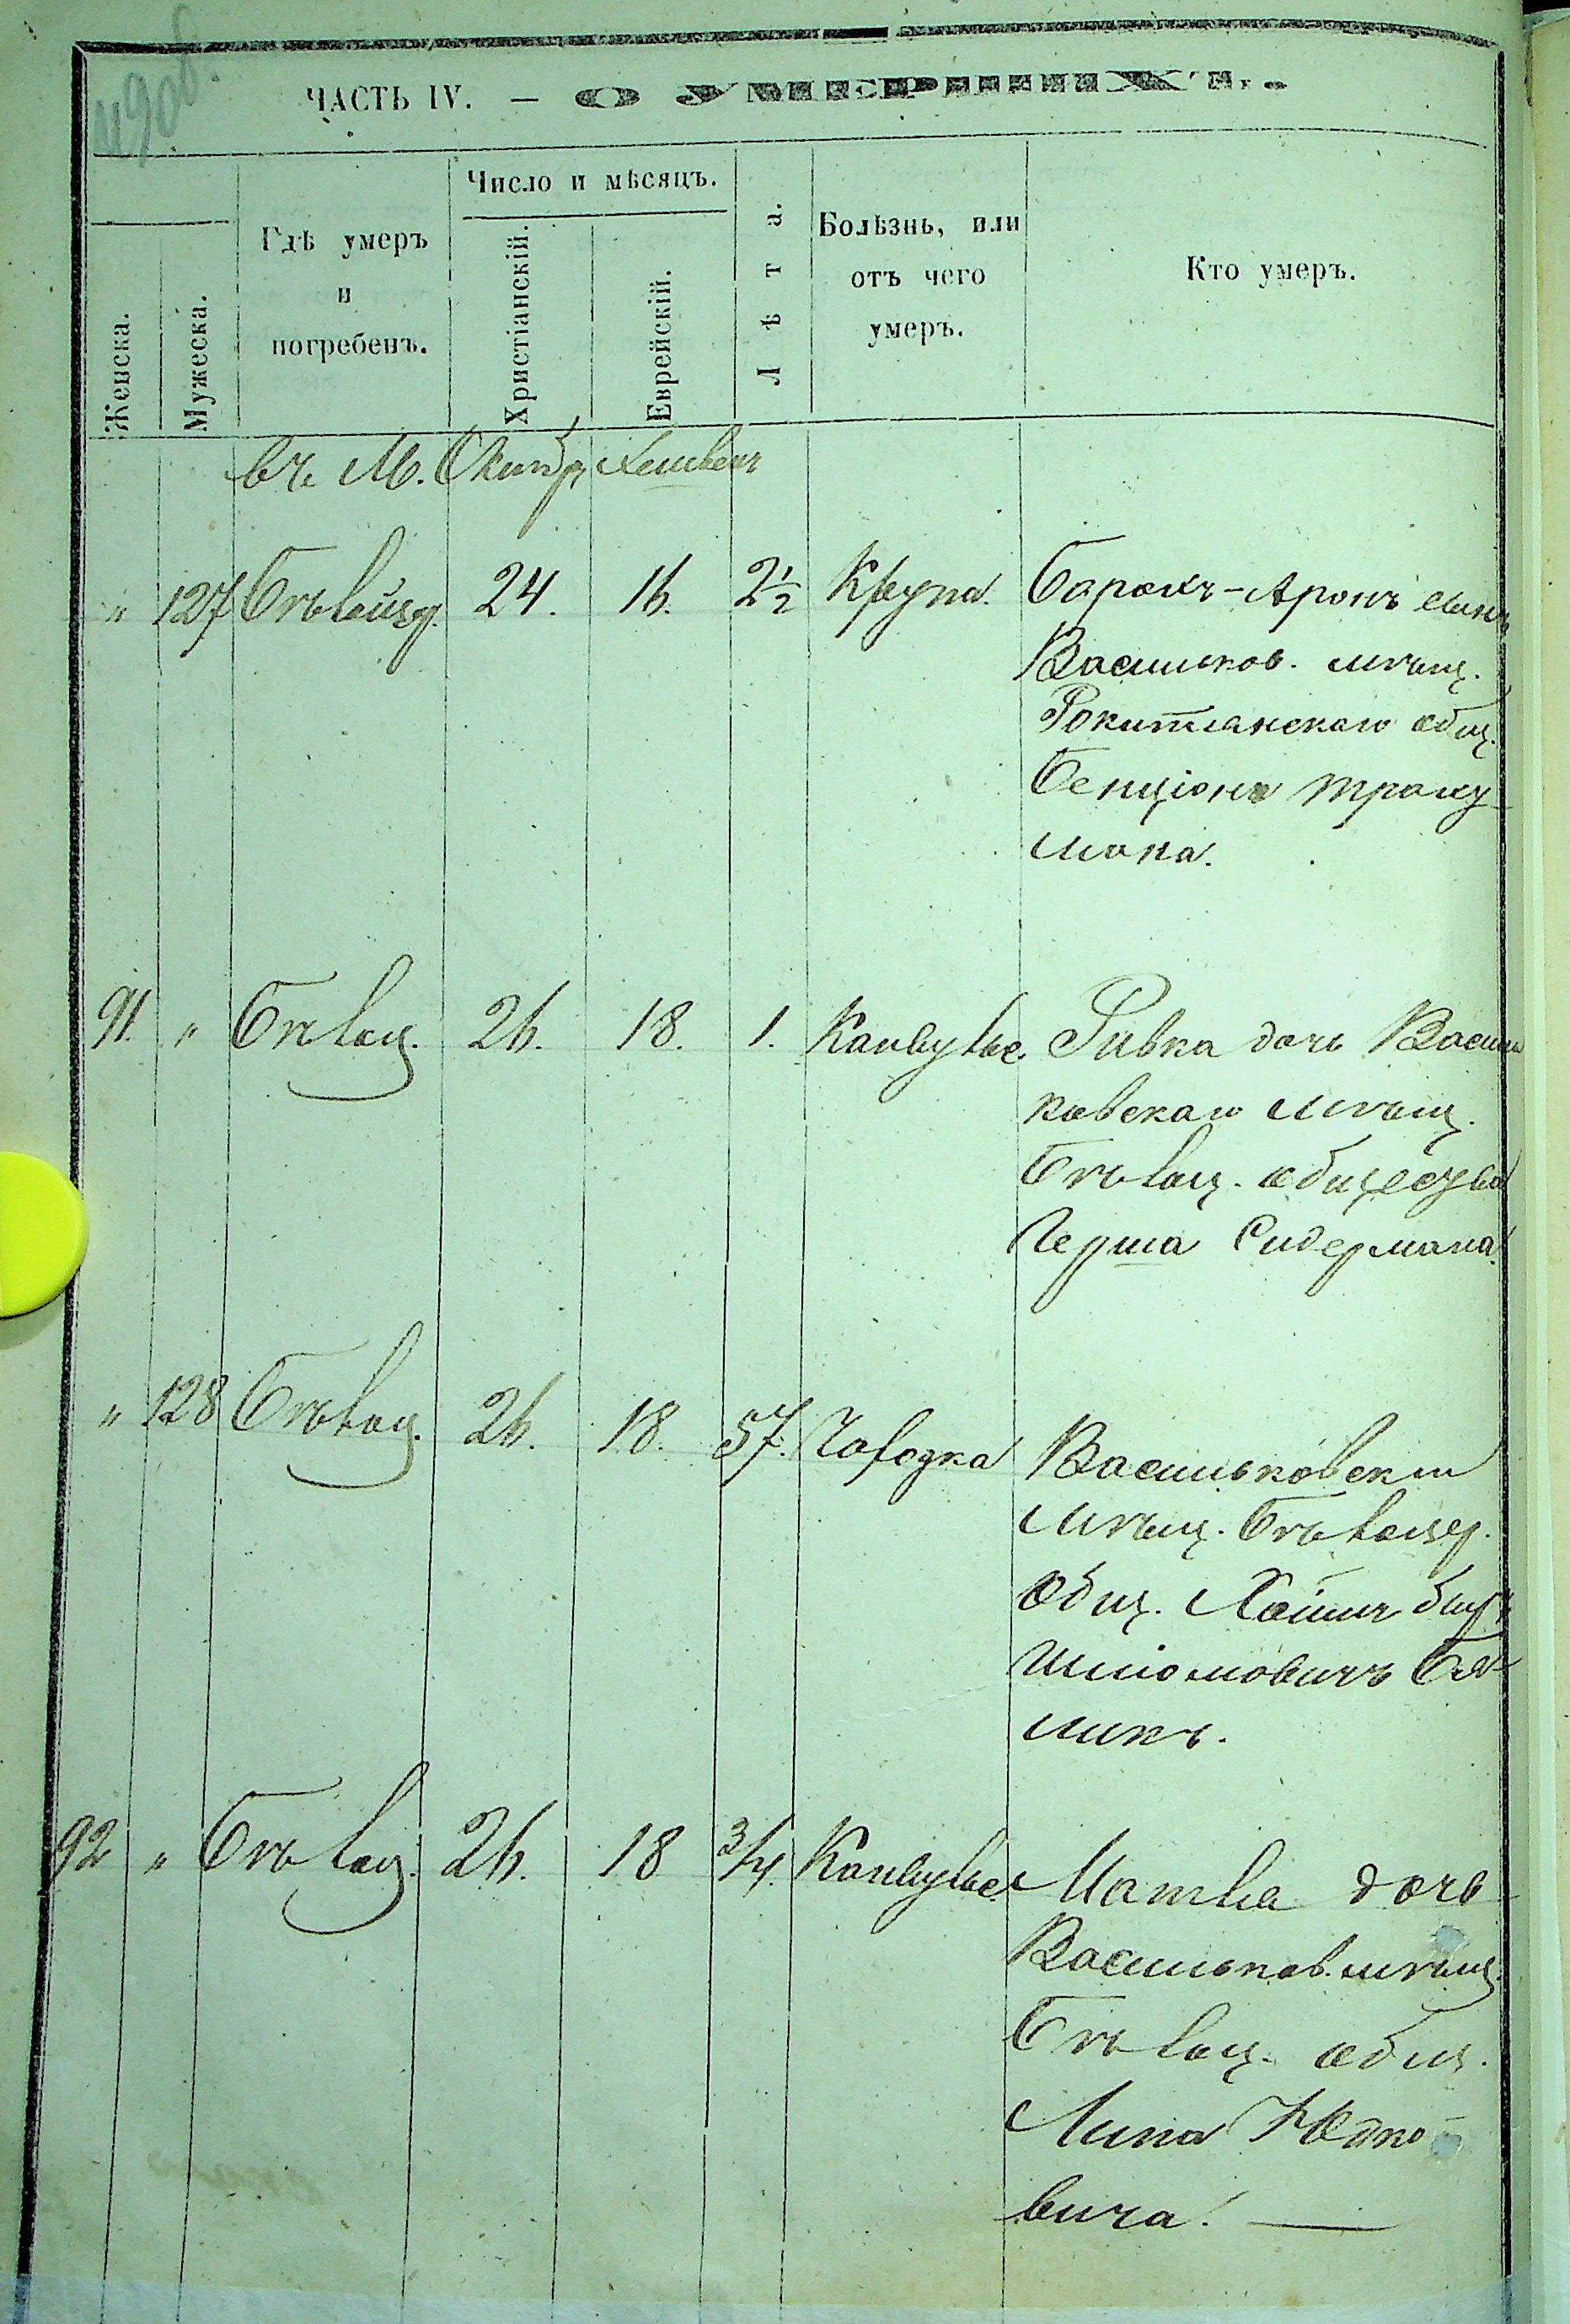 490об.
ЧАСТЬ IV. — О УМЕРШИХЪ.
Женска.
Мужеска.
Гдѣ умеръ
и
погребенъ.
Число и мѣсяцъ.
Христіанскій.
Еврейскій.
Лѣта.
Болѣзнь, или
отъ чего
умеръ.
Кто умеръ.
въ М. Октябр Хешвенъ
" 127 Бѣлайцер. 24. 16. 2½ Крупа. Барохъ-Аронъ сынъ
Васильков. мѣщ.
Рокитянскаго общ.
Бенціона
91. " Бѣлоц. 26. 18. 1. Конвульс. Ривка дочь Василь
ковскаго мѣщ.
Бѣлоц. общества
Герша Сидермана
" 128 Бѣлоц. 26. 18. 57. Чаходка Васильковскій
мѣщ. Бѣлоцер.
Общ. Хаимъ Бер
Шліомовичъ Бя-
ликъ.
92 " Бѣлоц. 26. 18 3/4. Конвульс. Матля дочь
Васильков. мѣщ.
Бѣлоц. общ.
Липа Юдко-
вича. —